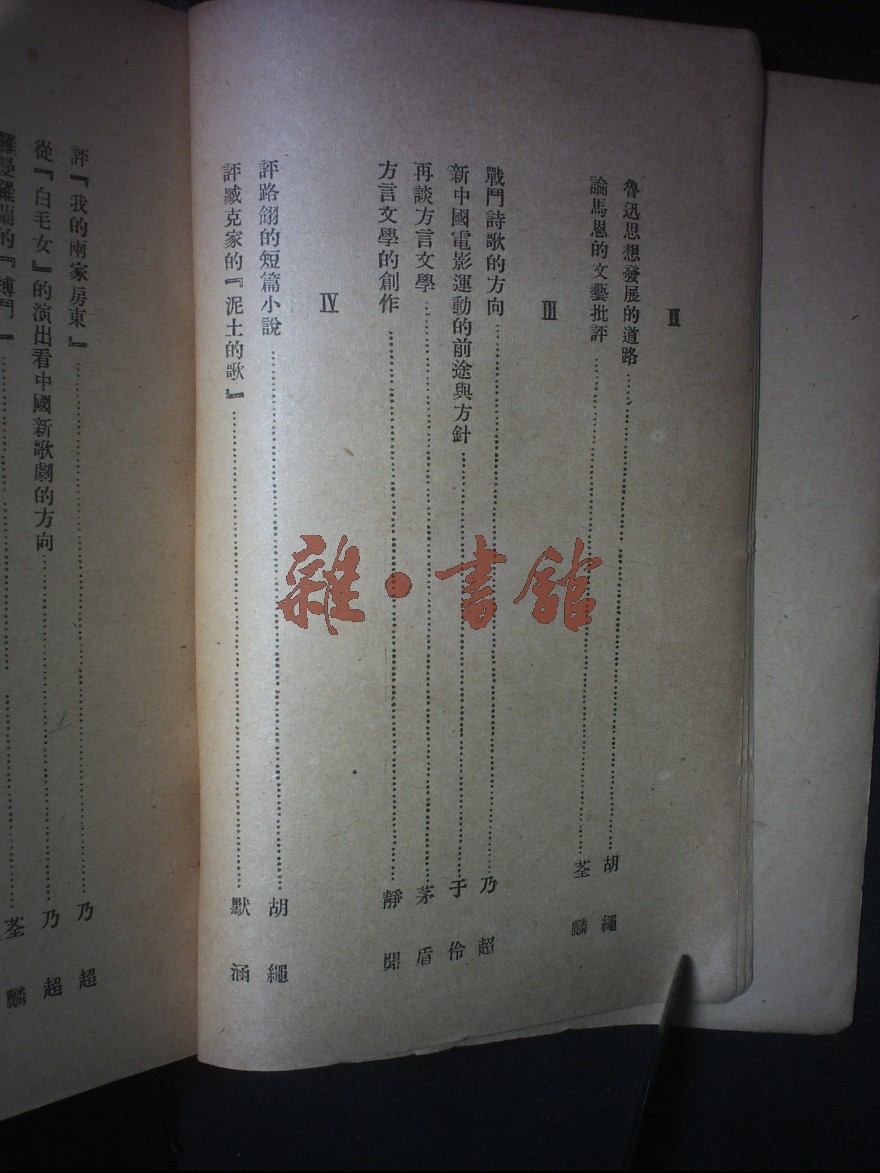 Ⅱ
魯迅思想發展的道路 胡繩
論馬恩的文藝批評 荃麟
Ⅲ
戰鬥詩歌的方向 乃超
新中國電影運動的前途與方針 于伶
再談方言文學 茅盾
方言文學的創作 靜聞
Ⅳ
評路翎的短篇小說 胡繩
評臧克家的『泥土的歌』 默涵
評『我的兩家房東』 乃超
從『白毛女』的演出看中國新歌劇的方向 乃超
羅曼羅蘭的『搏鬥』 荃麟
雜·書館